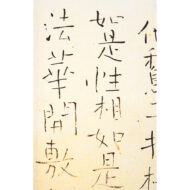 二
如是性相如是
法華開敷